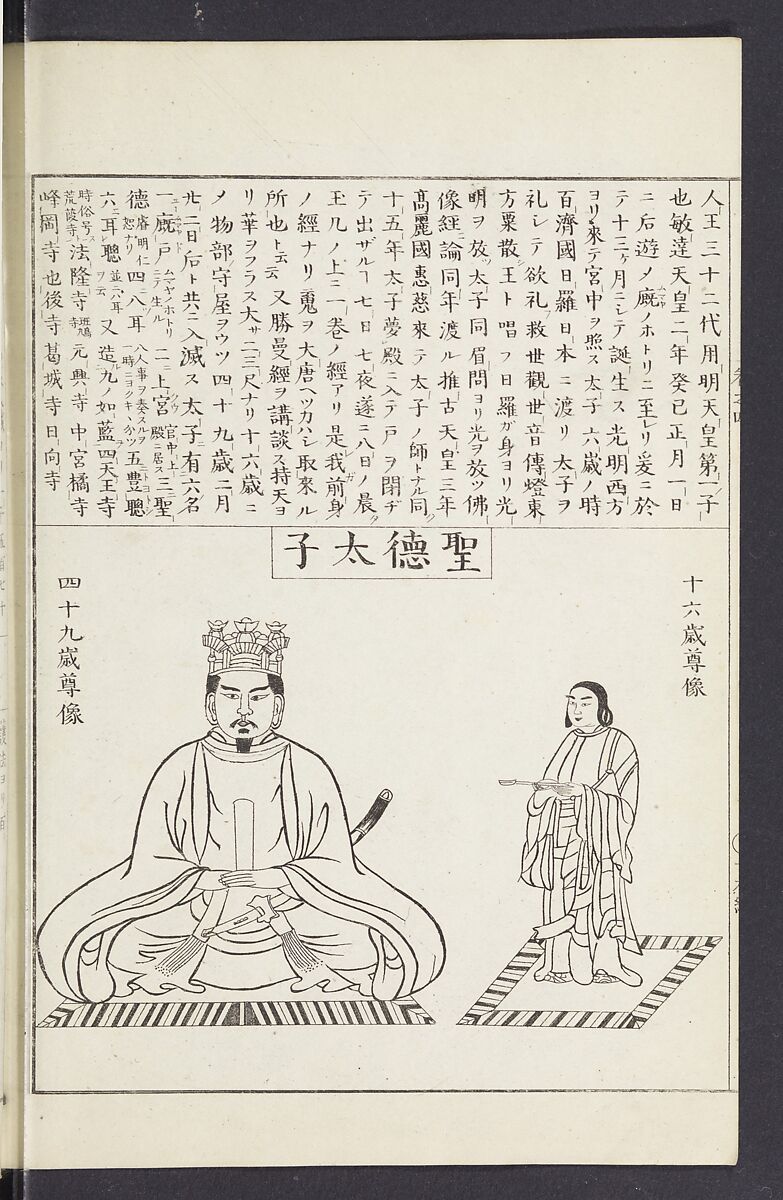 人王三十二代用明天皇第一子
也敏達天皇二年癸巳正月一日
ニ后遊ノ廐ノホトリニ至レリ爰ニ於
テ十三ヶ月ニシテ誕生ス光明西方
ヨリ來テ宮中ヲ照ス太子六歳ノ時
百濟國日羅日本ニ渡リ太子ヲ
礼シテ欲礼救世觀世音傳燈東
方粟散王ト唱フ日羅ガ身ヨリ光
明ヲ放ツ太子同眉間ヨリ光ヲ放ツ佛
像經論同年渡ル推古天皇三年
高麗國惠慈來テ太子ノ師トナル同
十五年太子夢殿ニ入テ戸ヲ閉ヂ
テ出ザルヿ七日七夜遂ニ八日ノ晨
玉几ノ上ニ一巻ノ經アリ是我前身
ノ經ナリ䰟ヲ大唐ヘツカハシ取來ル
所也ト云云又勝曼經ヲ講談ス持天ヨ
リ華ヲフラス大サ二三尺ナリ十六歳ニ
ノ物部守屋ヲウツ四十九歳二月
廿二日后ト共ニ入滅ス太子ニ有六名
一廐戸ムマヤノホトリニテ生ル二ニ上宮宮中上殿ニ居ス三聖
德睿明仁恕ナリ四八耳八人事ヲ奏スルヲ一時ニヨクキヽ分ツ五豊聰
六耳聰並二八耳ヲ云又造九ノ如藍四天王寺
時俗号ス荒陵寺ト法隆寺斑鳩寺元興寺中宮橘寺
峰岡寺也後寺葛城寺日向寺
聖德太子
十六歳尊像
四十九歳尊像